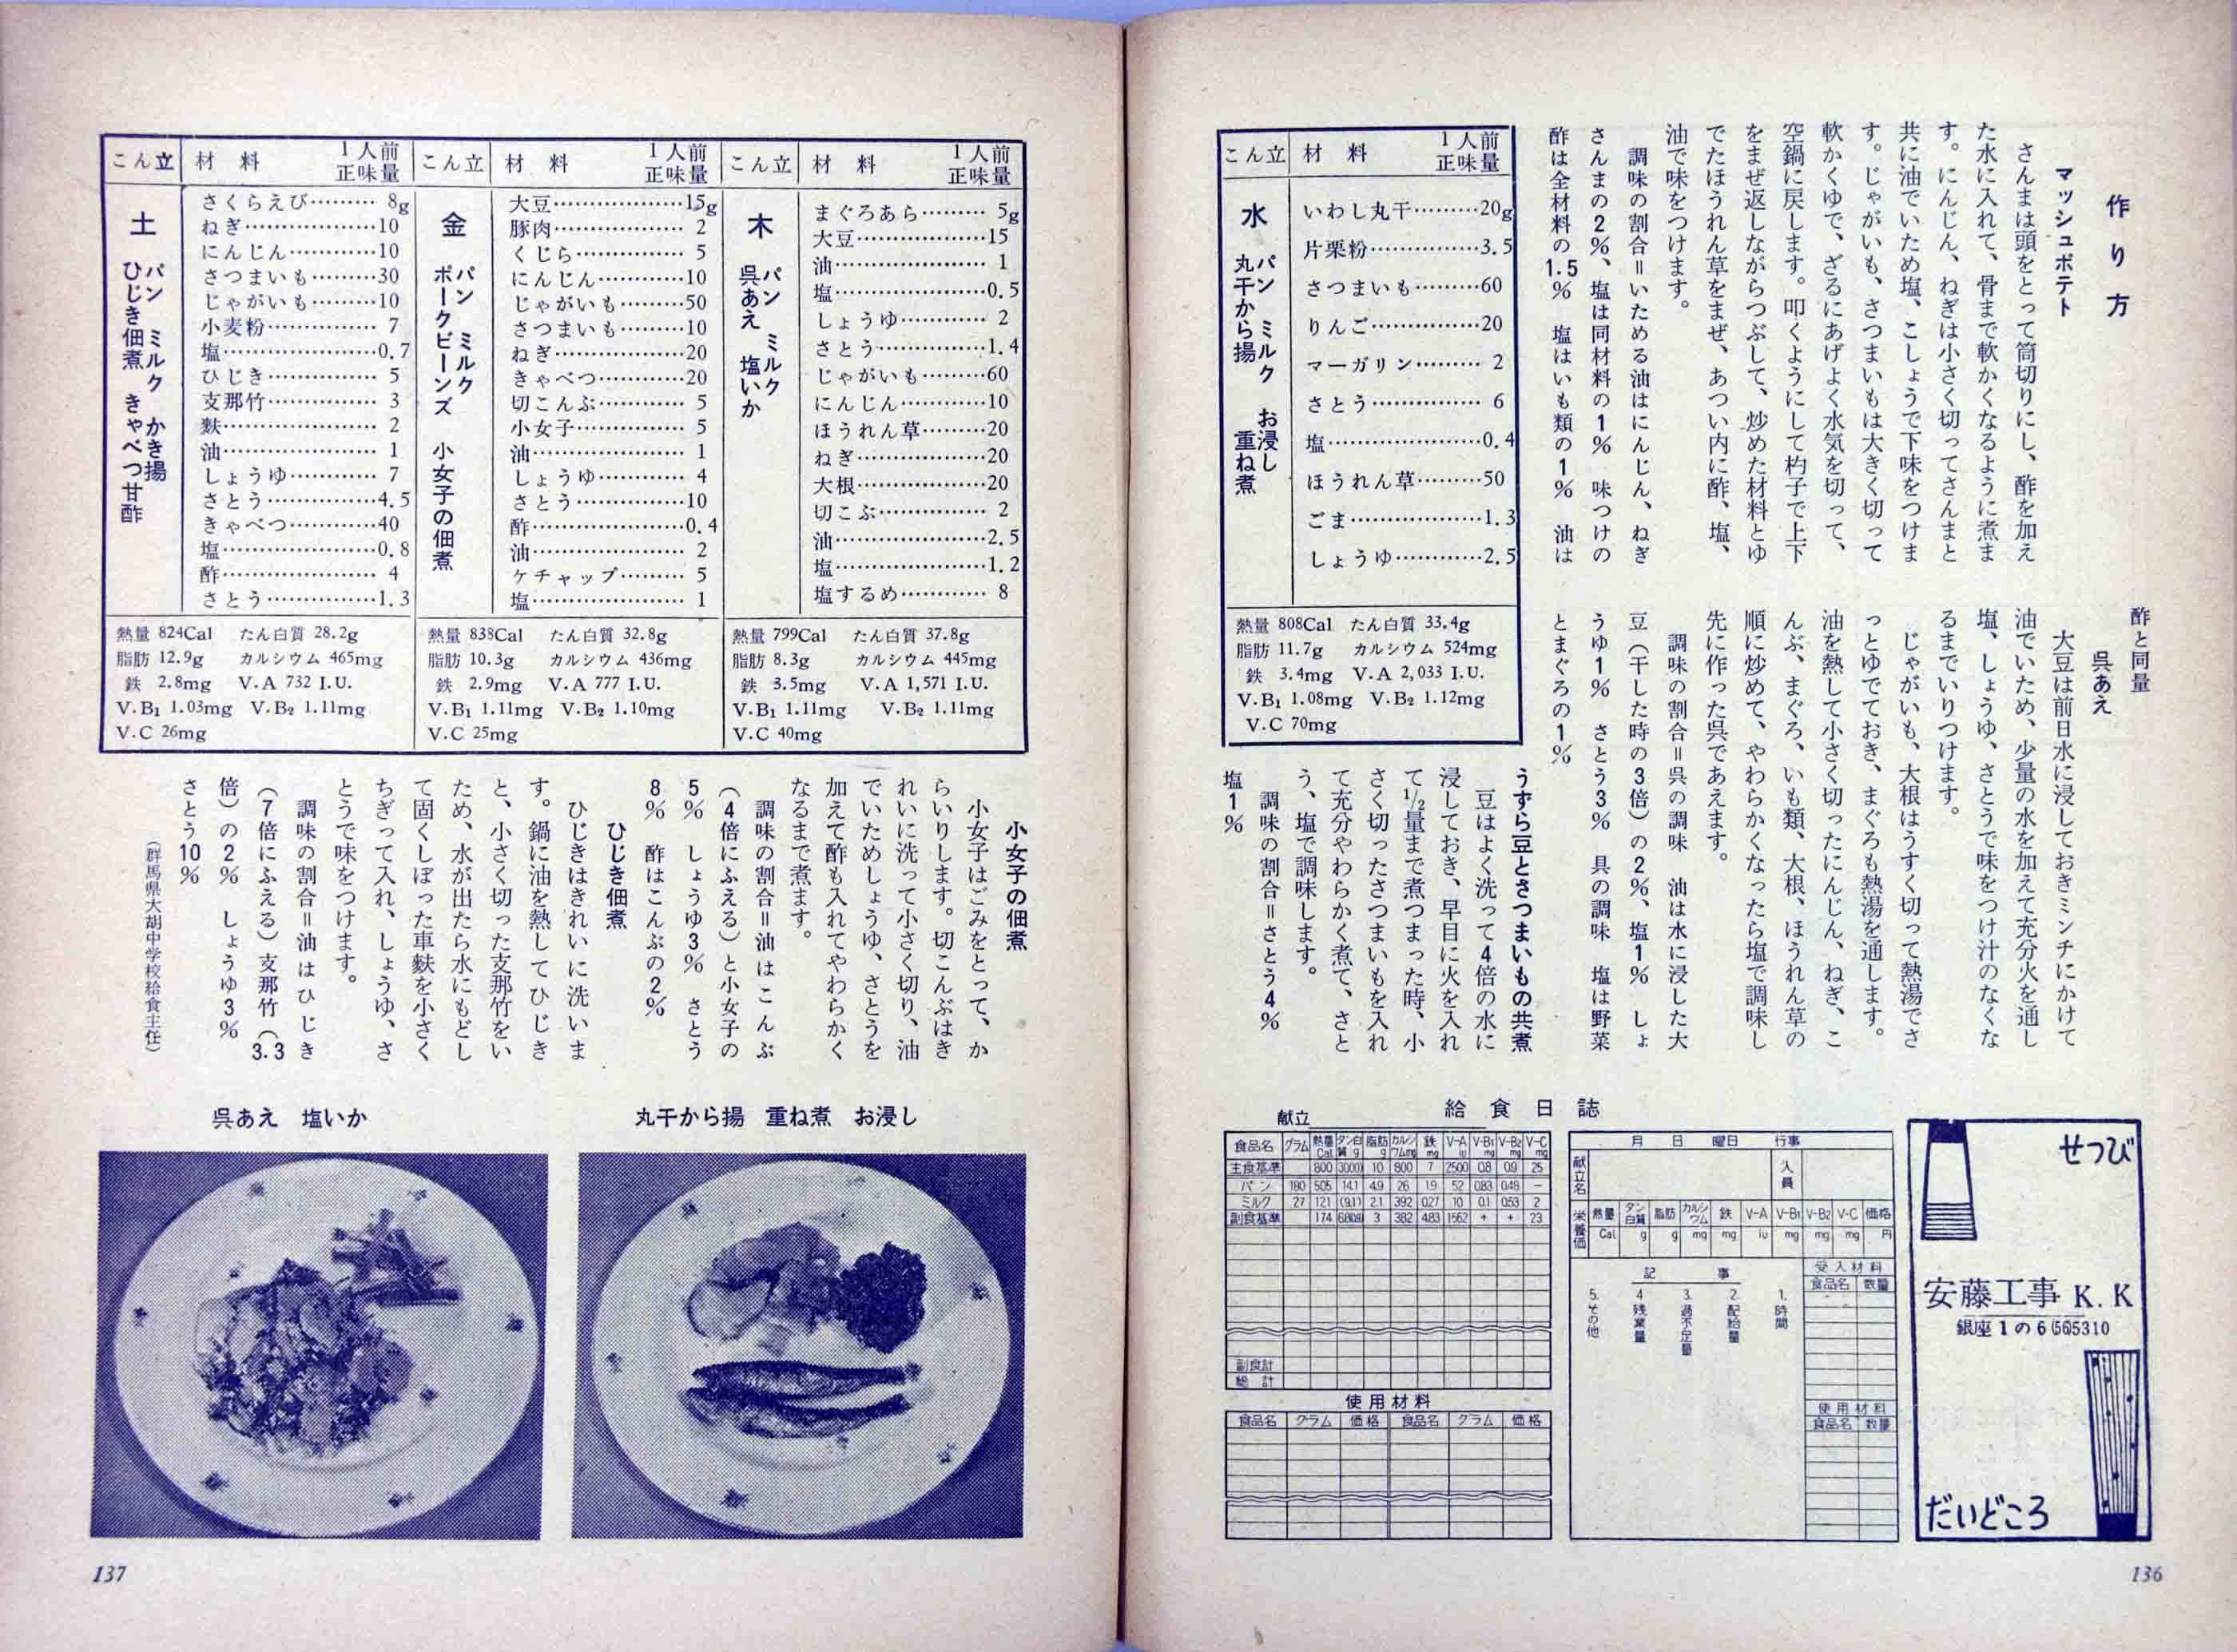 作り方
マッシュポテト
さんまは頭をとって筒切りにし、酢を加え
た水に入れて、骨まで軟かくなるように煮ま
す。にんじん、ねぎは小さく切ってさんまと
共に油でいため塩、こしょうで下味をつけま
す。じゃがいも、さつまいもは大きく切って
軟かくゆで、ざるにあげよく水気を切って、
空鍋に戻します。叩くようにして杓子で上下
をまぜ返しながらつぶして、炒めた材料とゆ
でたほうれん草をまぜ、あつい内に酢、塩、
油で味をつけます。
調味の割合＝いためる油はにんじん、ねぎ
さんまの2％、塩は同材料の1％ 味つけの
酢は全材料の1.5％ 塩はいも類の1％ 油は
酢と同量
呉あえ
大豆は前日水に浸しておきミンチにかけて
油でいため、少量の水を加えて充分火を通し
塩、しょうゆ、さとうで味をつけ汁のなくな
るまでいりつけます。
じゃがいも、大根はうすく切って熱湯でさ
っとゆでておき、まぐろも熱湯を通します。
油を熱して小さく切ったにんじん、ねぎ、こ
んぶ、まぐろ、いも類、大根、ほうれん草の
順に炒めて、やわらかくなったら塩で調味し
先に作った呉であえます。
調味の割合＝呉の調味 油は水に浸した大
豆（干した時の3倍）の2％、塩1％ しょ
うゆ1％ さとう3％ 具の調味 塩は野菜
とまぐろの1％
うずら豆とさつまいもの共煮
豆はよく洗って4倍の水に
浸しておき、早目に火を入れ
て1/2量まで煮つまった時、小
さく切ったさつまいもを入れ
て充分やわらかく煮て、さと
う、塩で調味します。
調味の割合＝さとう4％
塩1％
こん立 材料 1人前正味量
水 パン ミルク お浸し
丸干から揚 重ね煮
いわし丸干………20g
片栗粉……………3.5
さつまいも………60
りんご……………20
マーガリン……… 2
さとう…………… 6
塩…………………0.4
ほうれん草………50
ごま………………1.3
しょうゆ…………2.5
熱量 808Cal たん白質 33.4g
脂肪 11.7g カルシウム 524mg
鉄 3.4mg V.A 2,033 I.U.
V.B₁ 1.08mg V.B₂ 1.12mg
V.C 70mg
給食日誌
献立
食品名 グラム 熱量Cal タン白質g 脂肪g カルシウムmg 鉄mg V-A iu V-B₁ mg V-B₂ mg V-C mg
主食基準 800 10 600 7 2500 0.8 0.9 25
パン 180 505 14.1 4.9 26 1.9 52 0.83 0.48 −
ミルク 27 121 (9.1) 2.1 392 0.27 10 0.1 0.53 2
副食基準 174 3 382 4.83 1562 + + 23
副食計
総計
使用材料
食品名 グラム 価格 食品名 グラム 価格
月 日 曜日 行事
献立名 人員
栄養価 熱量 タン白質 脂肪 カルシウム 鉄 V-A V-B₁ V-B₂ V-C 価格
Cal g g mg mg iu mg mg mg 円
記事
1. 時間
2. 配給量
3. 過不足量
4. 残菜量
5. その他
受入材料
食品名 数量
使用材料
食品名 数量
せつび
安藤工事 K.K
銀座1の6 (56)5310
だいどころ
136
こん立 材料 1人前正味量
木 パン ミルク
呉あえ 塩いか
まぐろあら……… 5g
大豆………………15
油………………… 1
塩…………………0.5
しょうゆ………… 2
さとう……………1.4
じゃがいも………60
にんじん…………10
ほうれん草………20
ねぎ………………20
大根………………20
切こぶ…………… 2
油…………………2.5
塩…………………1.2
塩するめ………… 8
熱量 799Cal たん白質 37.8g
脂肪 8.3g カルシウム 445mg
鉄 3.5mg V.A 1,571 I.U.
V.B₁ 1.11mg V.B₂ 1.11mg
V.C 40mg
こん立 材料 1人前正味量
金 パン ミルク
ポークビーンズ 小女子の佃煮
大豆………………15g
豚肉……………… 2
くじら…………… 5
にんじん…………10
じゃがいも………50
さつまいも………10
ねぎ………………20
きゃべつ…………20
切こんぶ………… 5
小女子…………… 5
油………………… 1
しょうゆ………… 4
さとう……………10
酢…………………0.4
油………………… 2
ケチャップ……… 5
塩………………… 1
熱量 838Cal たん白質 32.8g
脂肪 10.3g カルシウム 436mg
鉄 2.9mg V.A 777 I.U.
V.B₁ 1.11mg V.B₂ 1.10mg
V.C 25mg
こん立 材料 1人前正味量
土 パン ミルク かき揚
ひじき佃煮 きゃべつ甘酢
さくらえび……… 8g
ねぎ………………10
にんじん…………10
さつまいも………30
じゃがいも………10
小麦粉…………… 7
塩…………………0.7
ひじき…………… 5
支那竹…………… 3
麩………………… 2
油………………… 1
しょうゆ………… 7
さとう……………4.5
きゃべつ…………40
塩…………………0.8
酢………………… 4
さとう……………1.3
熱量 824Cal たん白質 28.2g
脂肪 12.9g カルシウム 465mg
鉄 2.8mg V.A 732 I.U.
V.B₁ 1.03mg V.B₂ 1.11mg
V.C 26mg
小女子の佃煮
小女子はごみをとって、か
らいりします。切こんぶはき
れいに洗って小さく切り、油
でいためしょうゆ、さとうを
加えて酢も入れてやわらかく
なるまで煮ます。
調味の割合＝油はこんぶ
（4倍にふえる）と小女子の
5％ しょうゆ3％ さとう
8％ 酢はこんぶの2％
ひじき佃煮
ひじきはきれいに洗いま
す。鍋に油を熱してひじき
と、小さく切った支那竹をい
ため、水が出たら水にもどし
て固くしぼった車麩を小さく
ちぎって入れ、しょうゆ、さ
とうで味をつけます。
調味の割合＝油はひじき
（7倍にふえる）支那竹（3.3
倍）の2％ しょうゆ3％
さとう10％
（群馬県大胡中学校給食主任）
丸干から揚 重ね煮 お浸し
呉あえ 塩いか
137